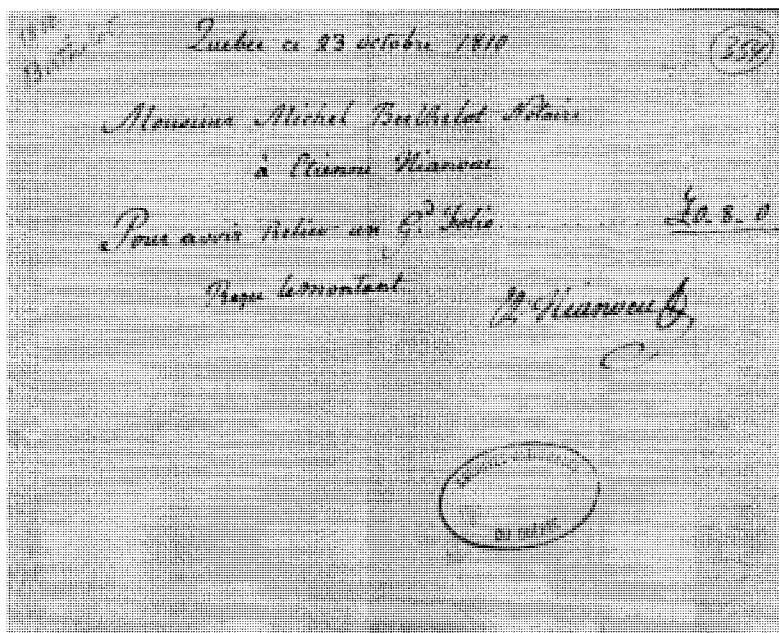 Quebec ce 23 octobre 1810
354
Monsieur Michel Berthelot Notaire
à Etienne
Pour avoir Relier un Gd Folio £0. 8. 0
Reçu le montant
DU QUÉBEC